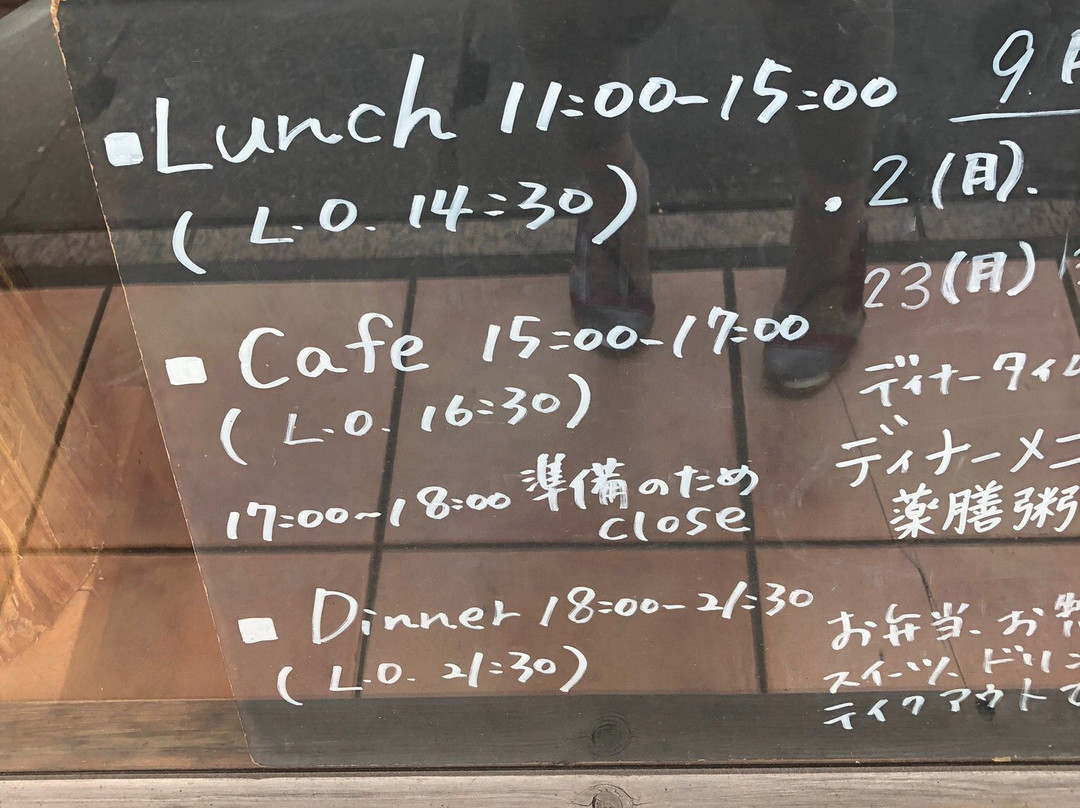 Lunch 11:00-15:00
(L.O. 14:30)
Cafe 15:00-17:00
(L.O. 16:30)
17:00~18:00 準備のため
close
Dinner 18:00-21:30
(L.O. 21:30)
9月
・2(月).
23(月)
ディナータイム
ディナーメニ
薬膳粥
お弁当、お惣
スイーツ、ドリン
テイクアウトで